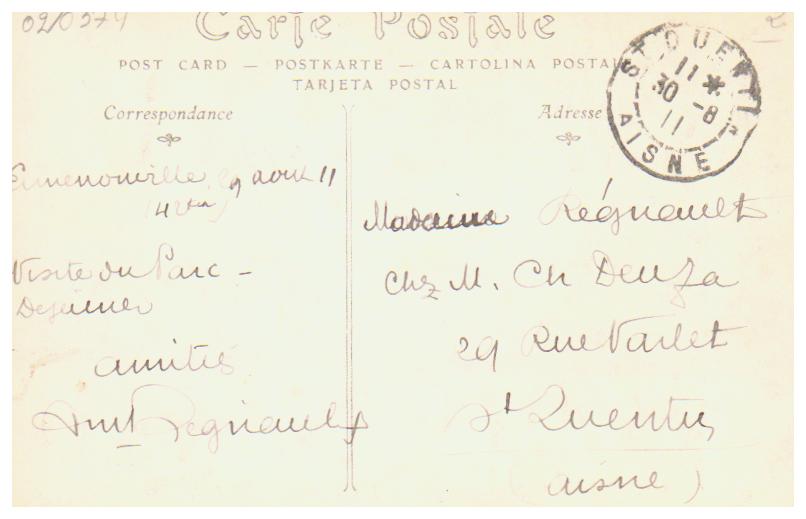 Carte Postale
POST CARD — POSTKARTE — CARTOLINA POSTAL
TARJETA POSTAL
Correspondance
Adresse
ST QUENTIN
11 *
30 - 8
11
AISNE
Ermenonville 29 août 11
Visite du Parc -
Dejeuner
amitiés
Regnault
Madame Régnault
chez M. Ch Deuza
29 Rue Varlet
St Quentin
(aisne)